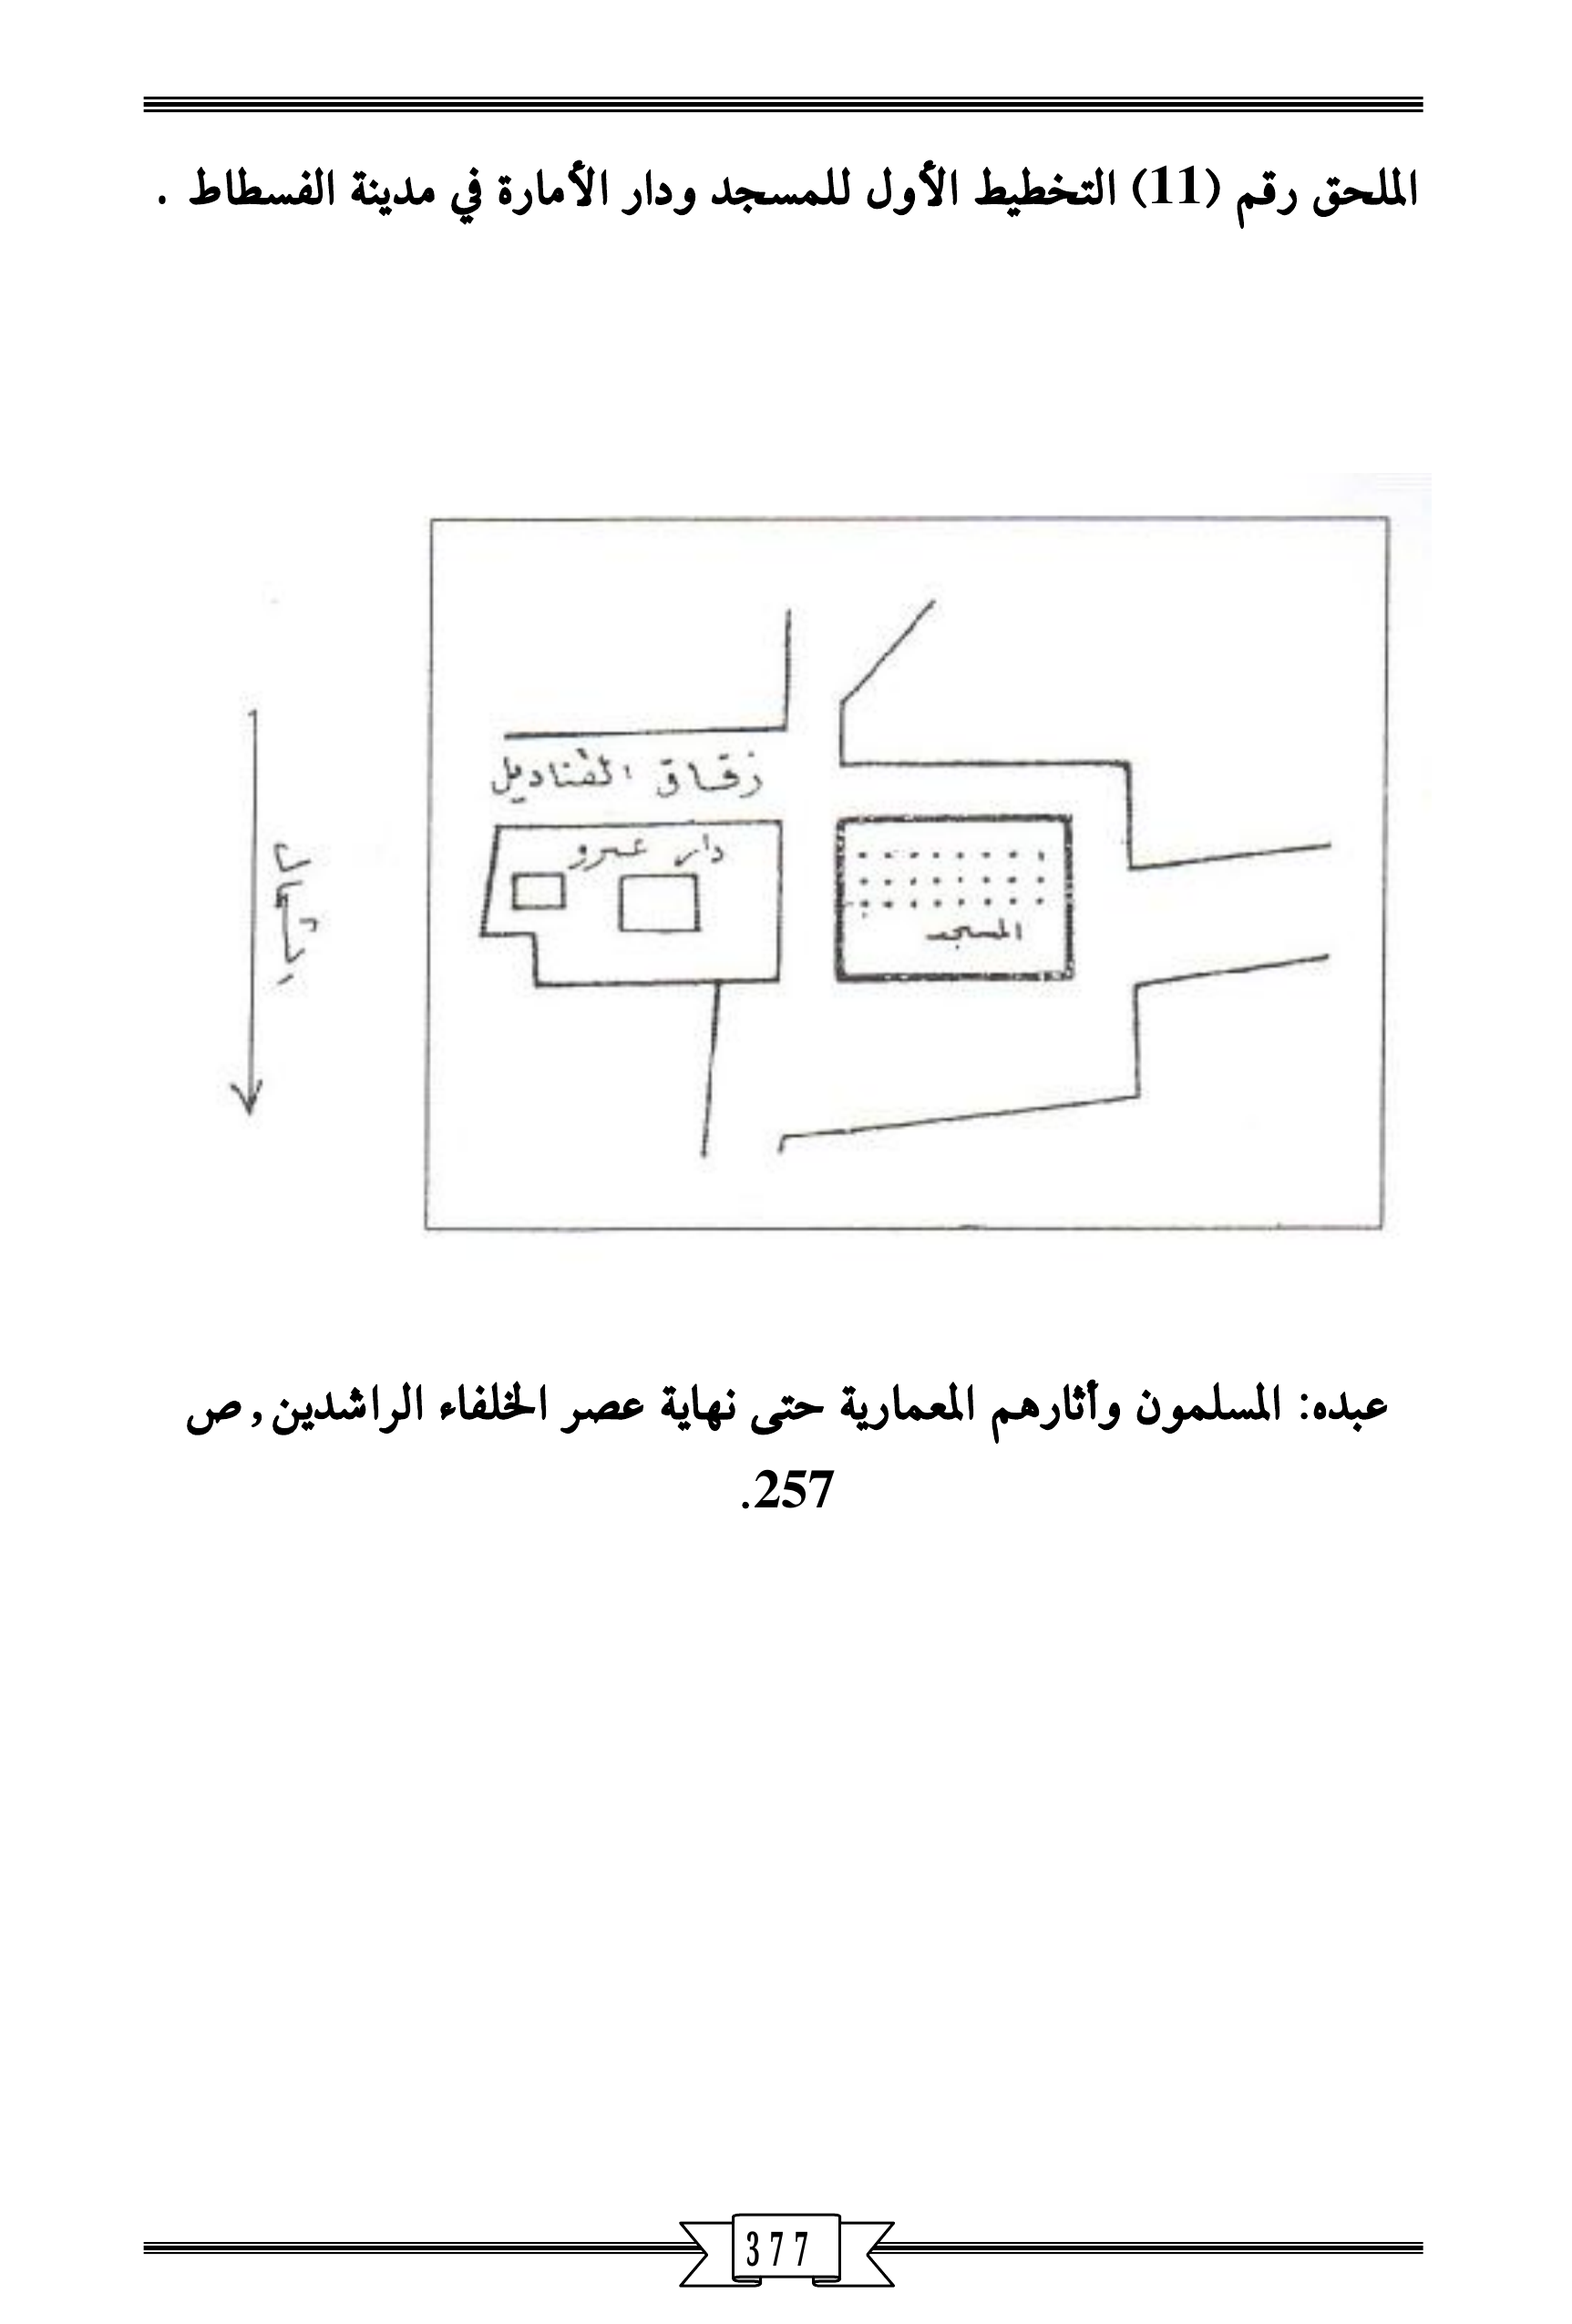 الملحق رقم (11) التخطيط الأول للمسجد ودار الأمارة في مدينة الفسطاط .
زقاق القناديل
دار عمرو
المسجد
عبده: المسلمون وأثارهم المعمارية حتى نهاية عصر الخلفاء الراشدين, ص
257.
377